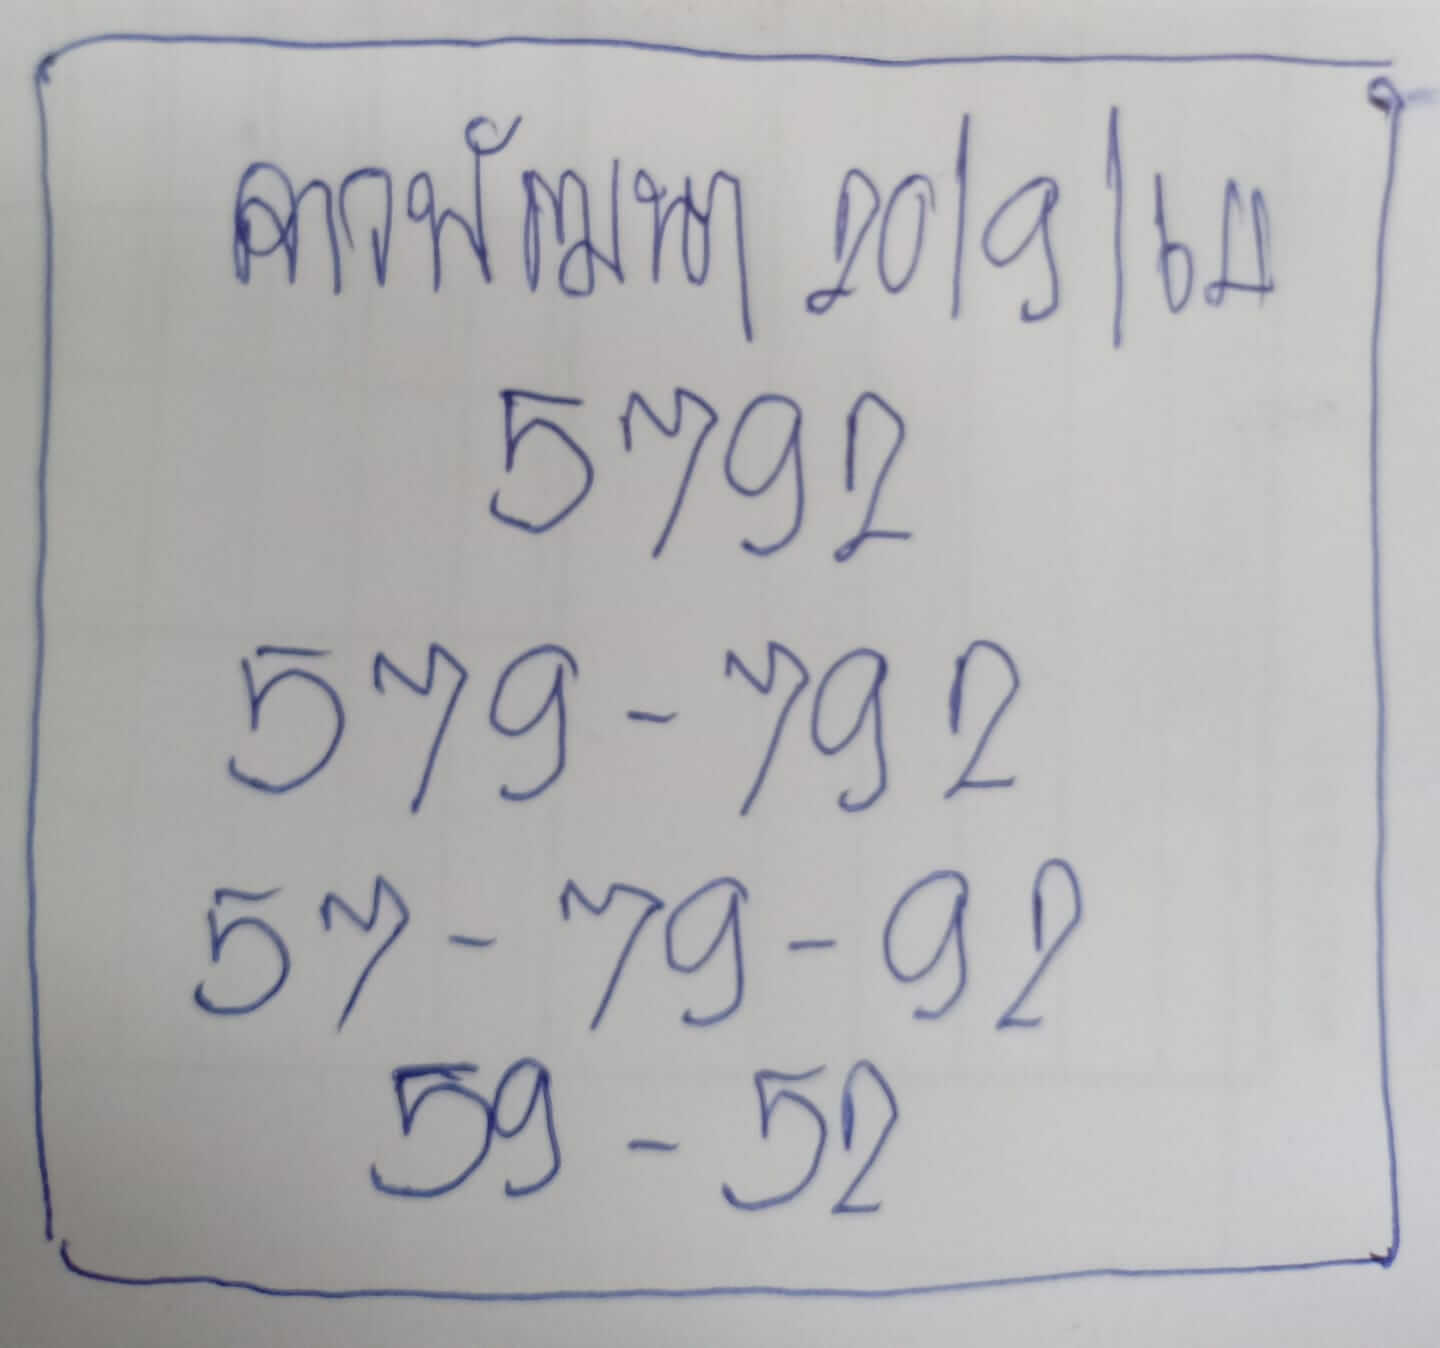 ลาวพัฒนา 20/9/64
5792
579-792
57-79-92
59-52